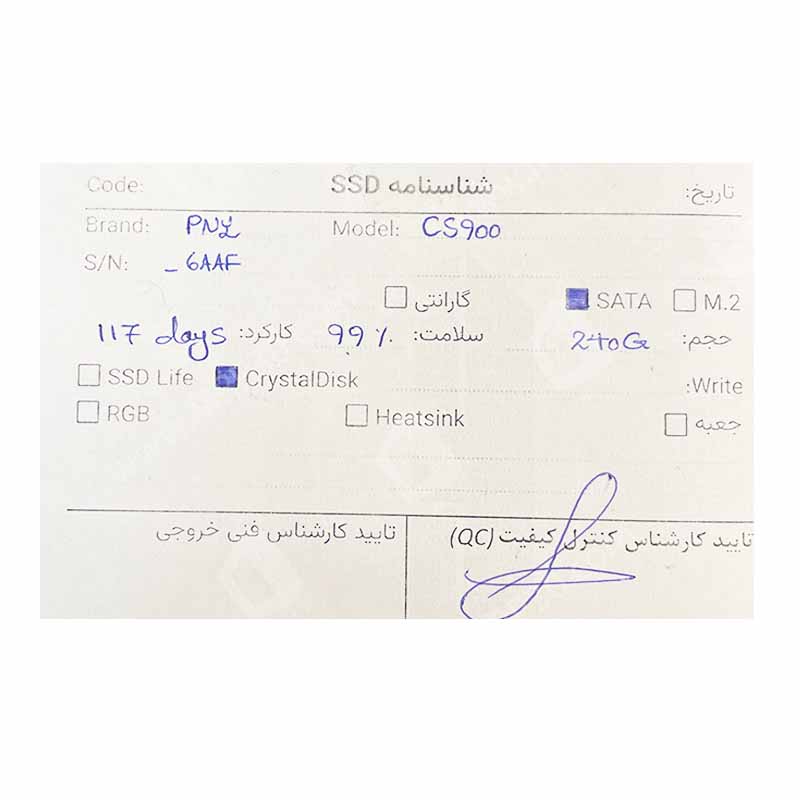 Code: شناسنامه SSD تاریخ:
Brand: PNY Model: CS900
S/N: _ 6AAF
گارانتی SATA M.2
حجم: 240G سلامت: 99 % کارکرد: 117 days
SSD Life CrystalDisk Write:
RGB Heatsink جعبه
تایید کارشناس کنترل کیفیت (QC) تایید کارشناس فنی خروجی